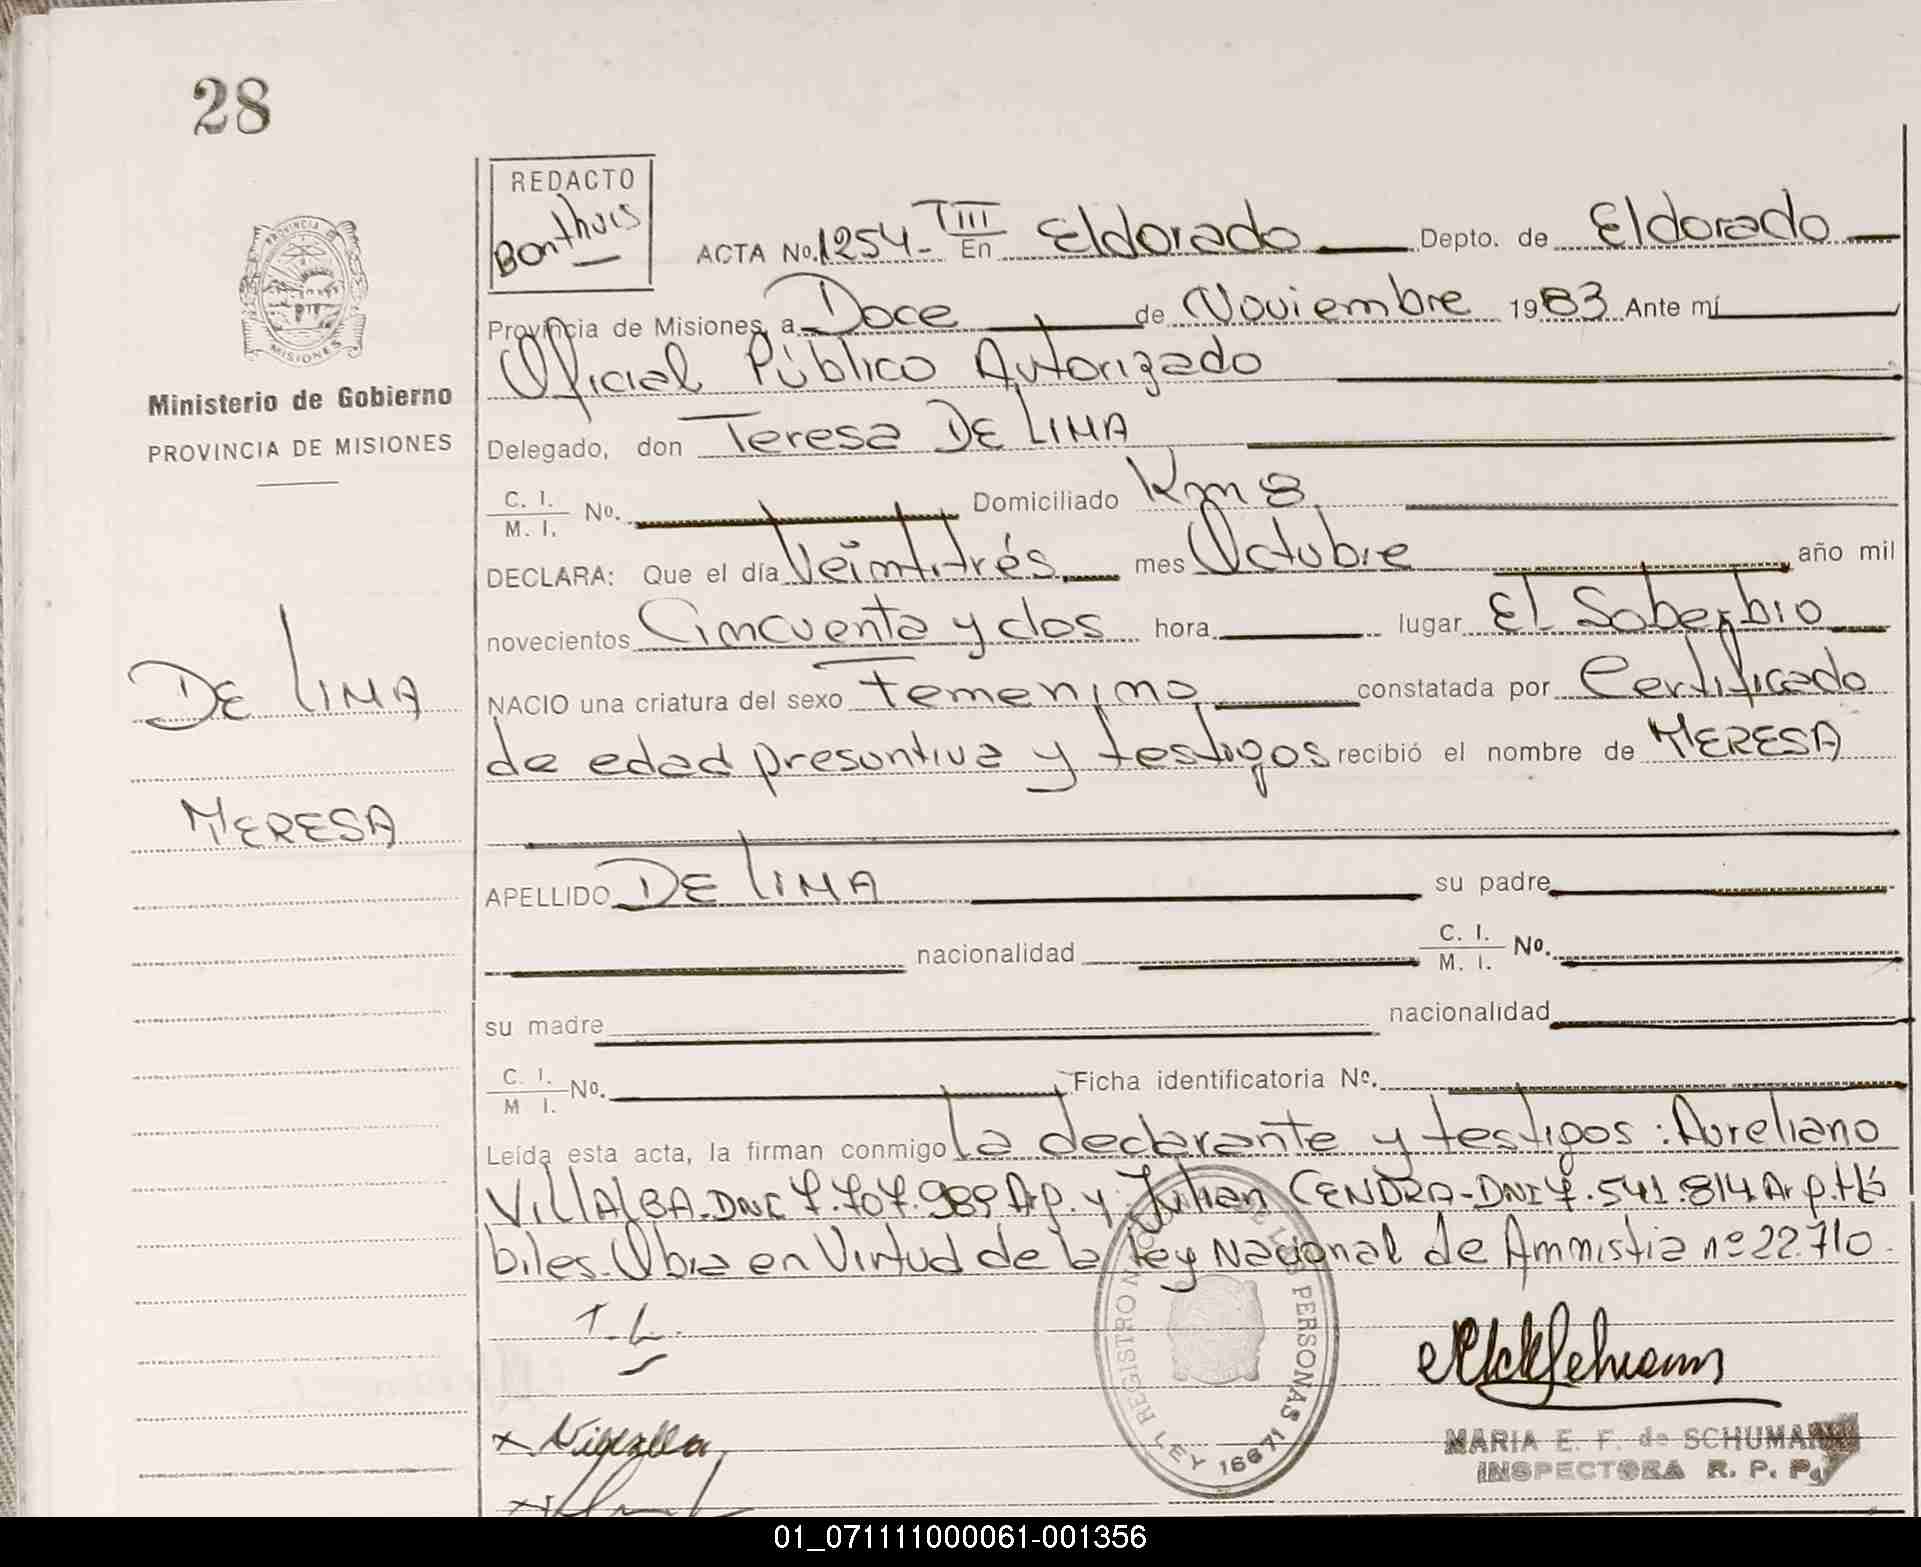 28
REDACTO
Bonthuis
ACTA No. 1254- TIII En Eldorado Depto. de Eldorado
Provincia de Misiones, a Doce de Noviembre 1983 Ante mí
Oficial Público Autorizado
PROVINCIA DE
MISIONES
Ministerio de Gobierno
PROVINCIA DE MISIONES
Delegado, don Teresa DE LIMA
C. I.
M. I. No. Domiciliado Km 8
DECLARA: Que el día Veintitrés mes Octubre año mil
novecientos Cincuenta y dos hora lugar El Soberbio
DE LIMA
NACIO una criatura del sexo Femenino constatada por Certificado
de edad presuntiva y testigos recibió el nombre de MERESA
MERESA
APELLIDO DE LIMA su padre
nacionalidad C. I.
M. I. No.
su madre nacionalidad
C. I.
M I. No. Ficha identificatoria No.
Leída esta acta, la firman conmigo la declarante y testigos: Aureliano
VILLALBA-DNI 7.707.989 Arg. y Julian CENDRA-DNI 7.541.814 Arg. Há
biles. Obra en Virtud de la Ley Nacional de Amnistia nº 22.710.
T. L.
REGISTRO NACIONAL DE LAS PERSONAS
LEY 16671
x Villalba
MARIA E. F. de SCHUMANN
INSPECTORA R. P. P.
01_071111000061-001356